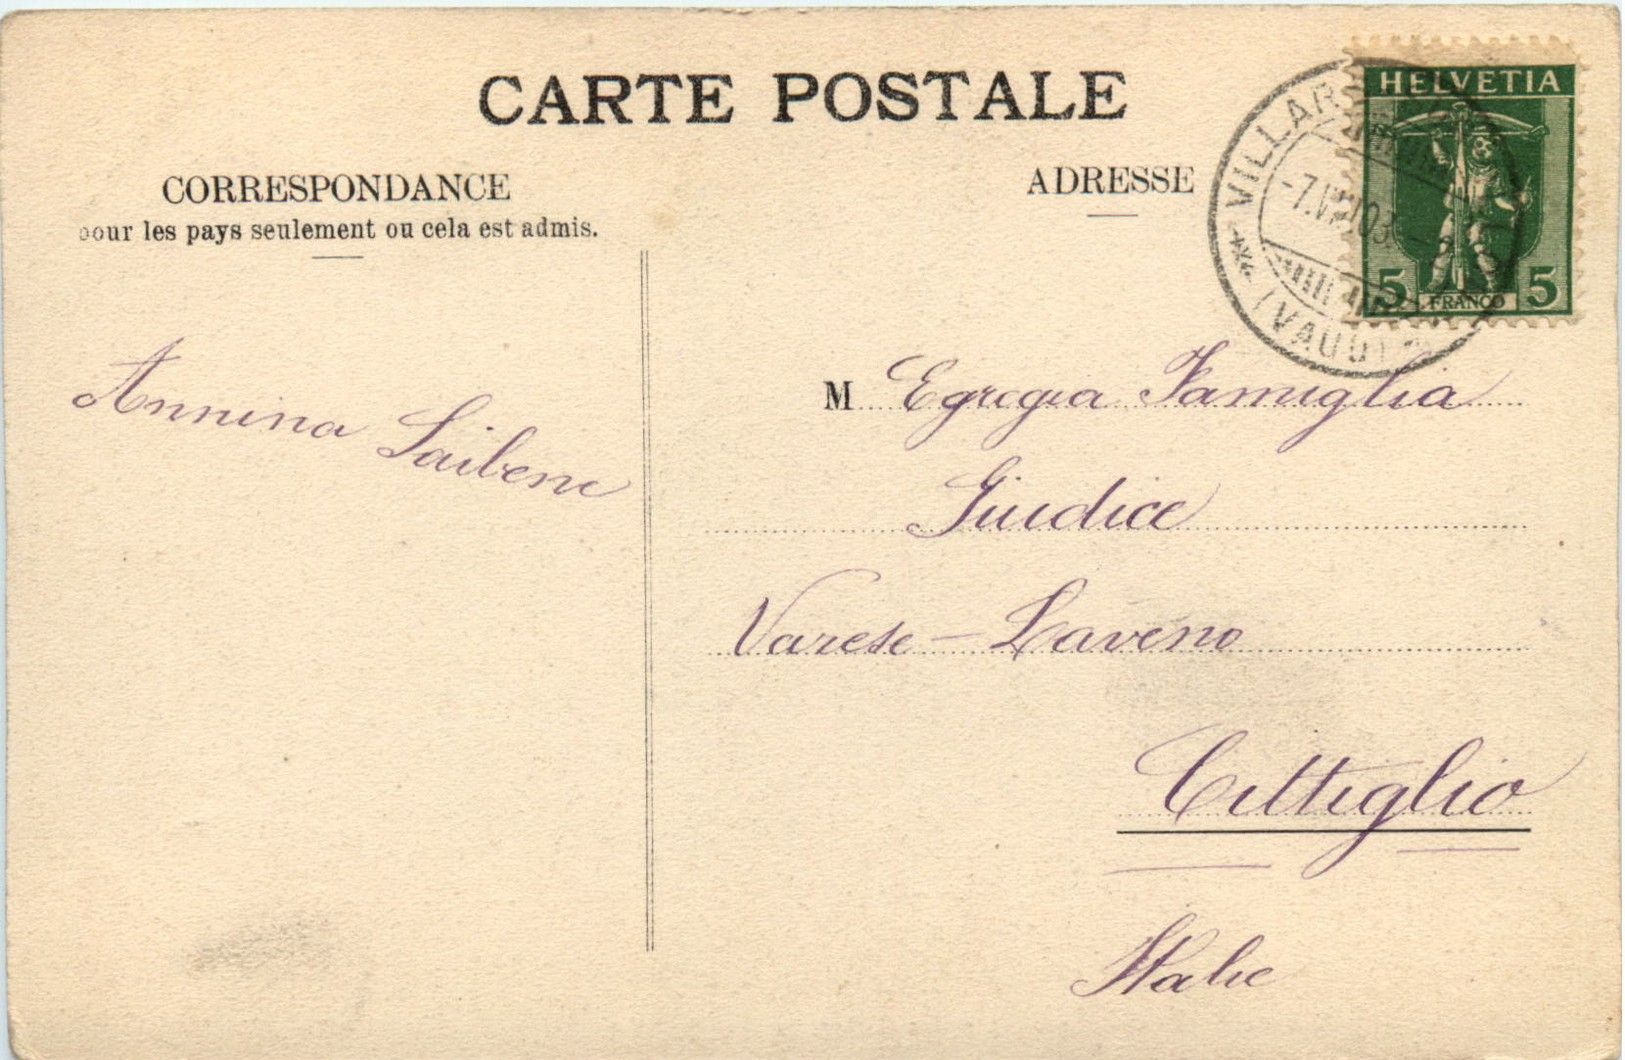 CARTE POSTALE
CORRESPONDANCE
pour les pays seulement ou cela est admis.
ADRESSE
HELVETIA
5 FRANCO 5
VILLARS
(VAUD)
Annina Laibene
M Egregia Famiglia
Giudice
Varese - Laveno
Cittiglio
Italie